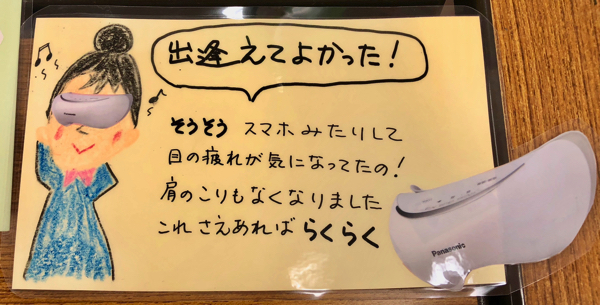 出逢えてよかった!
そうそう スマホみたりして
目の疲れが気になってたの!
肩のこりもなくなりました
これさえあれば らくらく
Panasonic